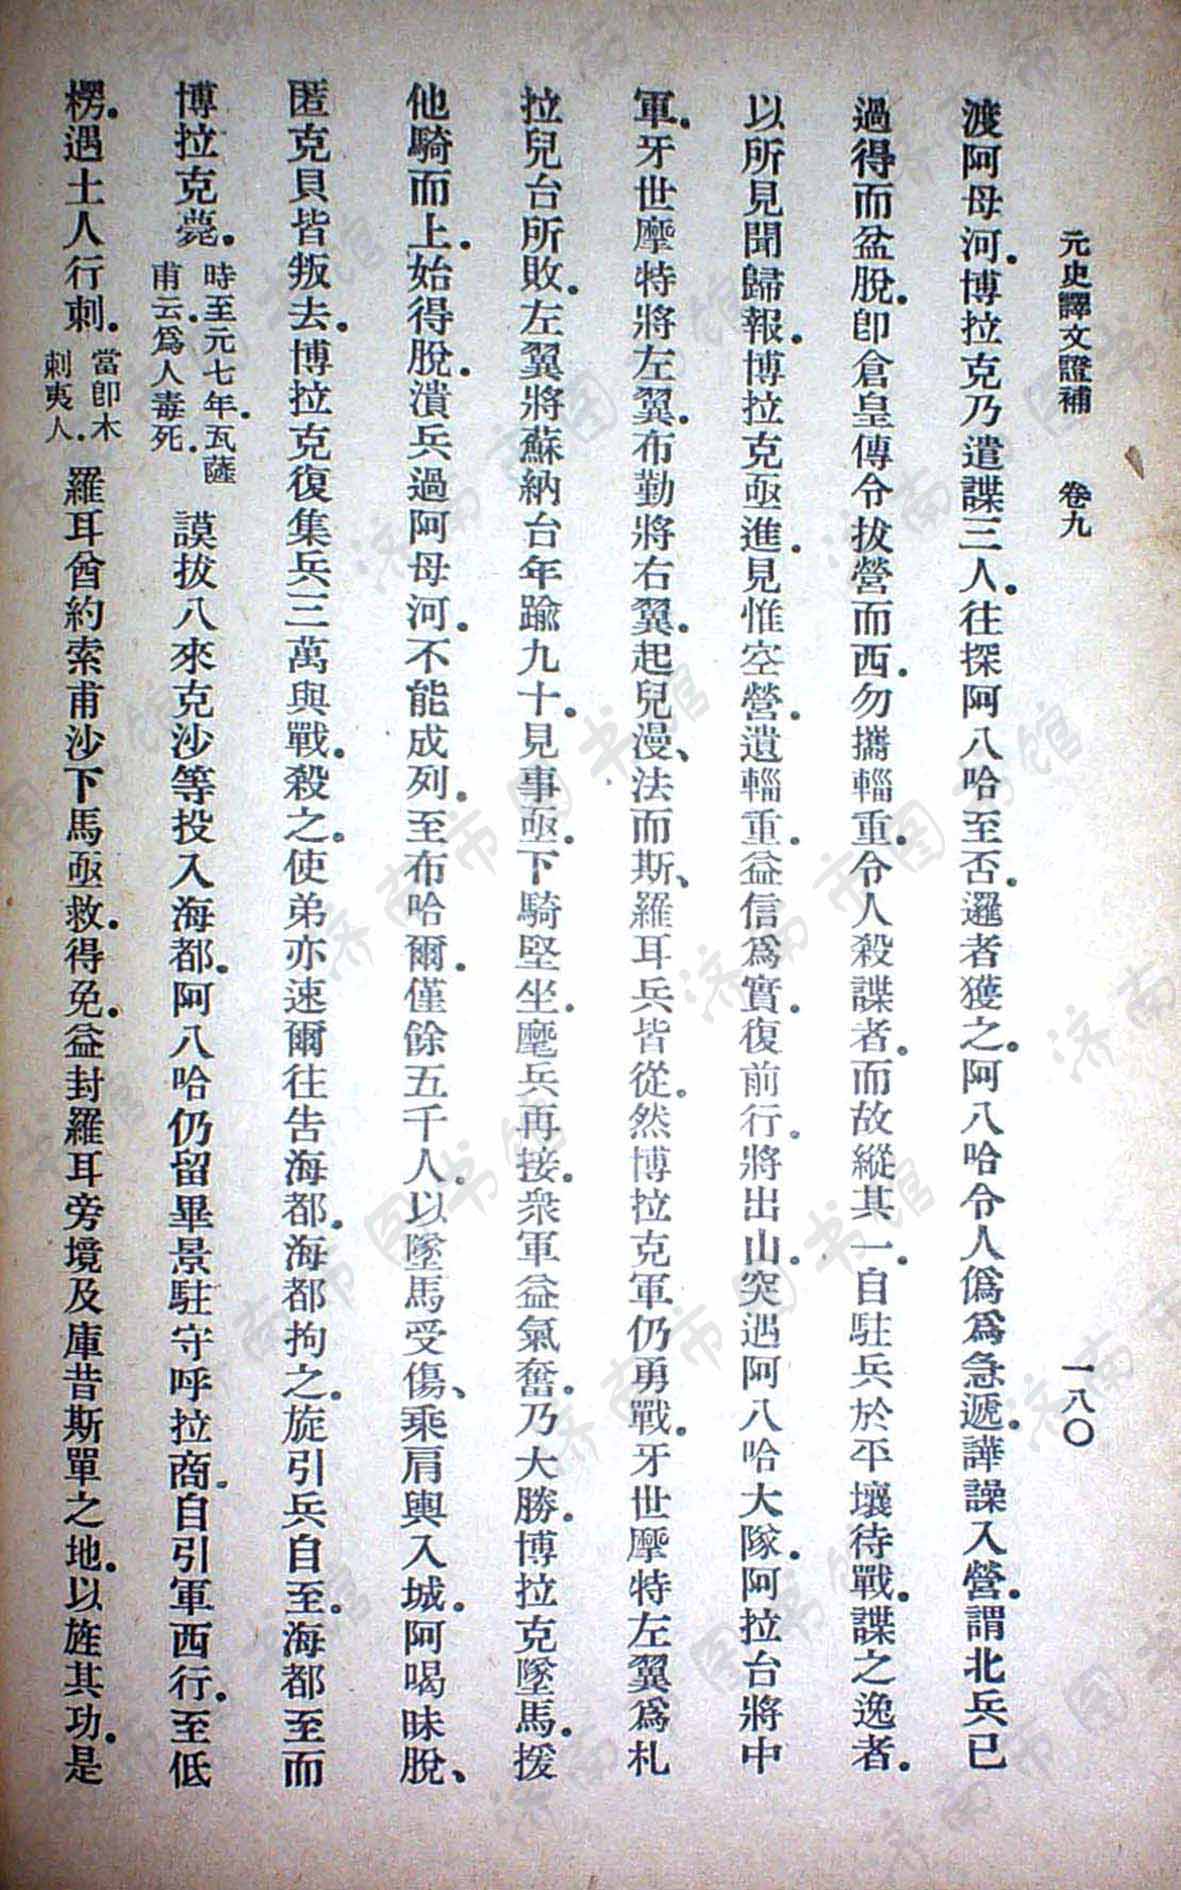 元史譯文證補　卷九　一八〇
渡阿母河。博拉克乃遣諜三人。往探阿八哈至否。邏者獲之。阿八哈令人僞爲急遞。譁譟入營。謂北兵已
過得而盆脫。卽倉皇傳令拔營而西。勿攜輜重。令人殺諜者。而故縱其一。自駐兵於平壤待戰。諜之逸者。
以所見聞歸報。博拉克亟進。見惟空營。遺輜重。益信爲實。復前行。將出山。突遇阿八哈大隊。阿拉台將中
軍。牙世摩特將左翼。布勤將右翼。起兒漫、法而斯、羅耳兵皆從。然博拉克軍仍勇戰。牙世摩特左翼爲札
拉兒台所敗。左翼將蘇納台年踰九十。見事亟。下騎堅坐。麾兵再接。衆軍益氣奮。乃大勝。博拉克墜馬。援
他騎而上。始得脫。潰兵過阿母河。不能成列。至布哈爾。僅餘五千人。以墜馬受傷、乘肩輿入城。阿喝昧脫、
匿克貝皆叛去。博拉克復集兵三萬與戰。殺之。使弟亦速爾往吿海都。海都拘之。旋引兵自至。海都至而
博拉克薨。時至元七年。瓦薩甫云。爲人毒死。謨拔八來克沙等投入海都。阿八哈仍留畢景駐守呼拉商。自引軍西行。至低
楞。遇土人行刺。當卽木剌夷人。羅耳酋約索甫沙下馬亟救。得免。益封羅耳旁境及庫昔斯單之地。以旌其功。是
济南市图书馆